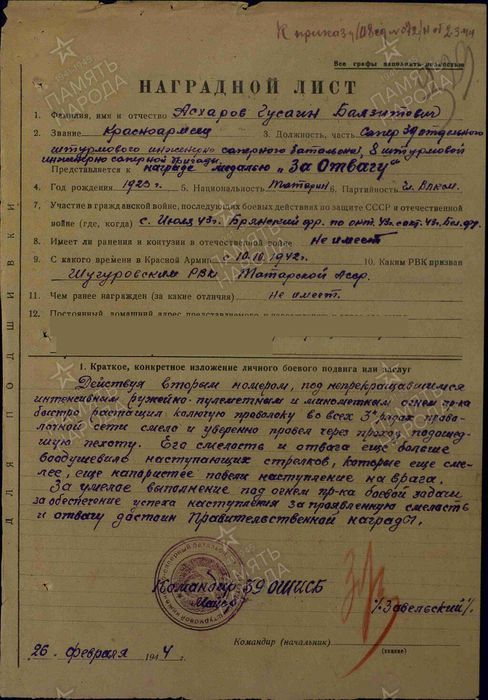 К приказу
Все графы заполнять полностью
НАГРАДНОЙ ЛИСТ
1. Фамилия, имя и отчество Асхаров Гусаин Баязитович
2. Звание Красноармеец 3. Должность, часть Сапер 39 отдельного
штурмового инженерно саперного батальона, 8 штурмовой
инженерно саперной бригады
Представляется к награде медалью „За Отвагу“
4. Год рождения 1925 г. 5. Национальность Татарин 6. Партийность чл. ВЛКСМ.
7. Участие в гражданской войне, последующих боевых действиях по защите СССР и отечественной
войне (где, когда) с Июля 43г. Брянский фр. по окт. 43г. с окт. 43г. Бел. фр.
8. Имеет ли ранения и контузии в отечественной войне не имеет
9. С какого времени в Красной Армии с 10.10.1942г. 10. Каким РВК призван
Шугуровским РВК Татарской Асср.
11. Чем ранее награжден (за какие отличия) не имеет.
12. Постоянный домашний адрес представляемого к
1. Краткое, конкретное изложение личного боевого подвига или заслуг
Действуя вторым номером, под непрекращавшимся
интенсивным ружейно-пулеметным и минометным огнем пр-ка
быстро растащил колючую проволоку во всех 3х рядах прово-
лочной сети смело и уверенно провел через проход подошед-
шую пехоту. Его смелость и отвага еще больше
воодушевило наступающих стрелков, которые еще сме-
лее, еще напористее повели наступление на врага.
За умелое выполнение под огнем пр-ка боевой задачи
за обеспечение успеха наступления за проявленную смелость
и отвагу достоин Правительственной награды.
Командир 39 ОШИСБ
Майор /Завельский/.
Командир (начальник)
(звание)
26 февраля 1944 г.
ДЛЯ ПОДШИВКИ
ПАМЯТЬ НАРОДА
1941-1945